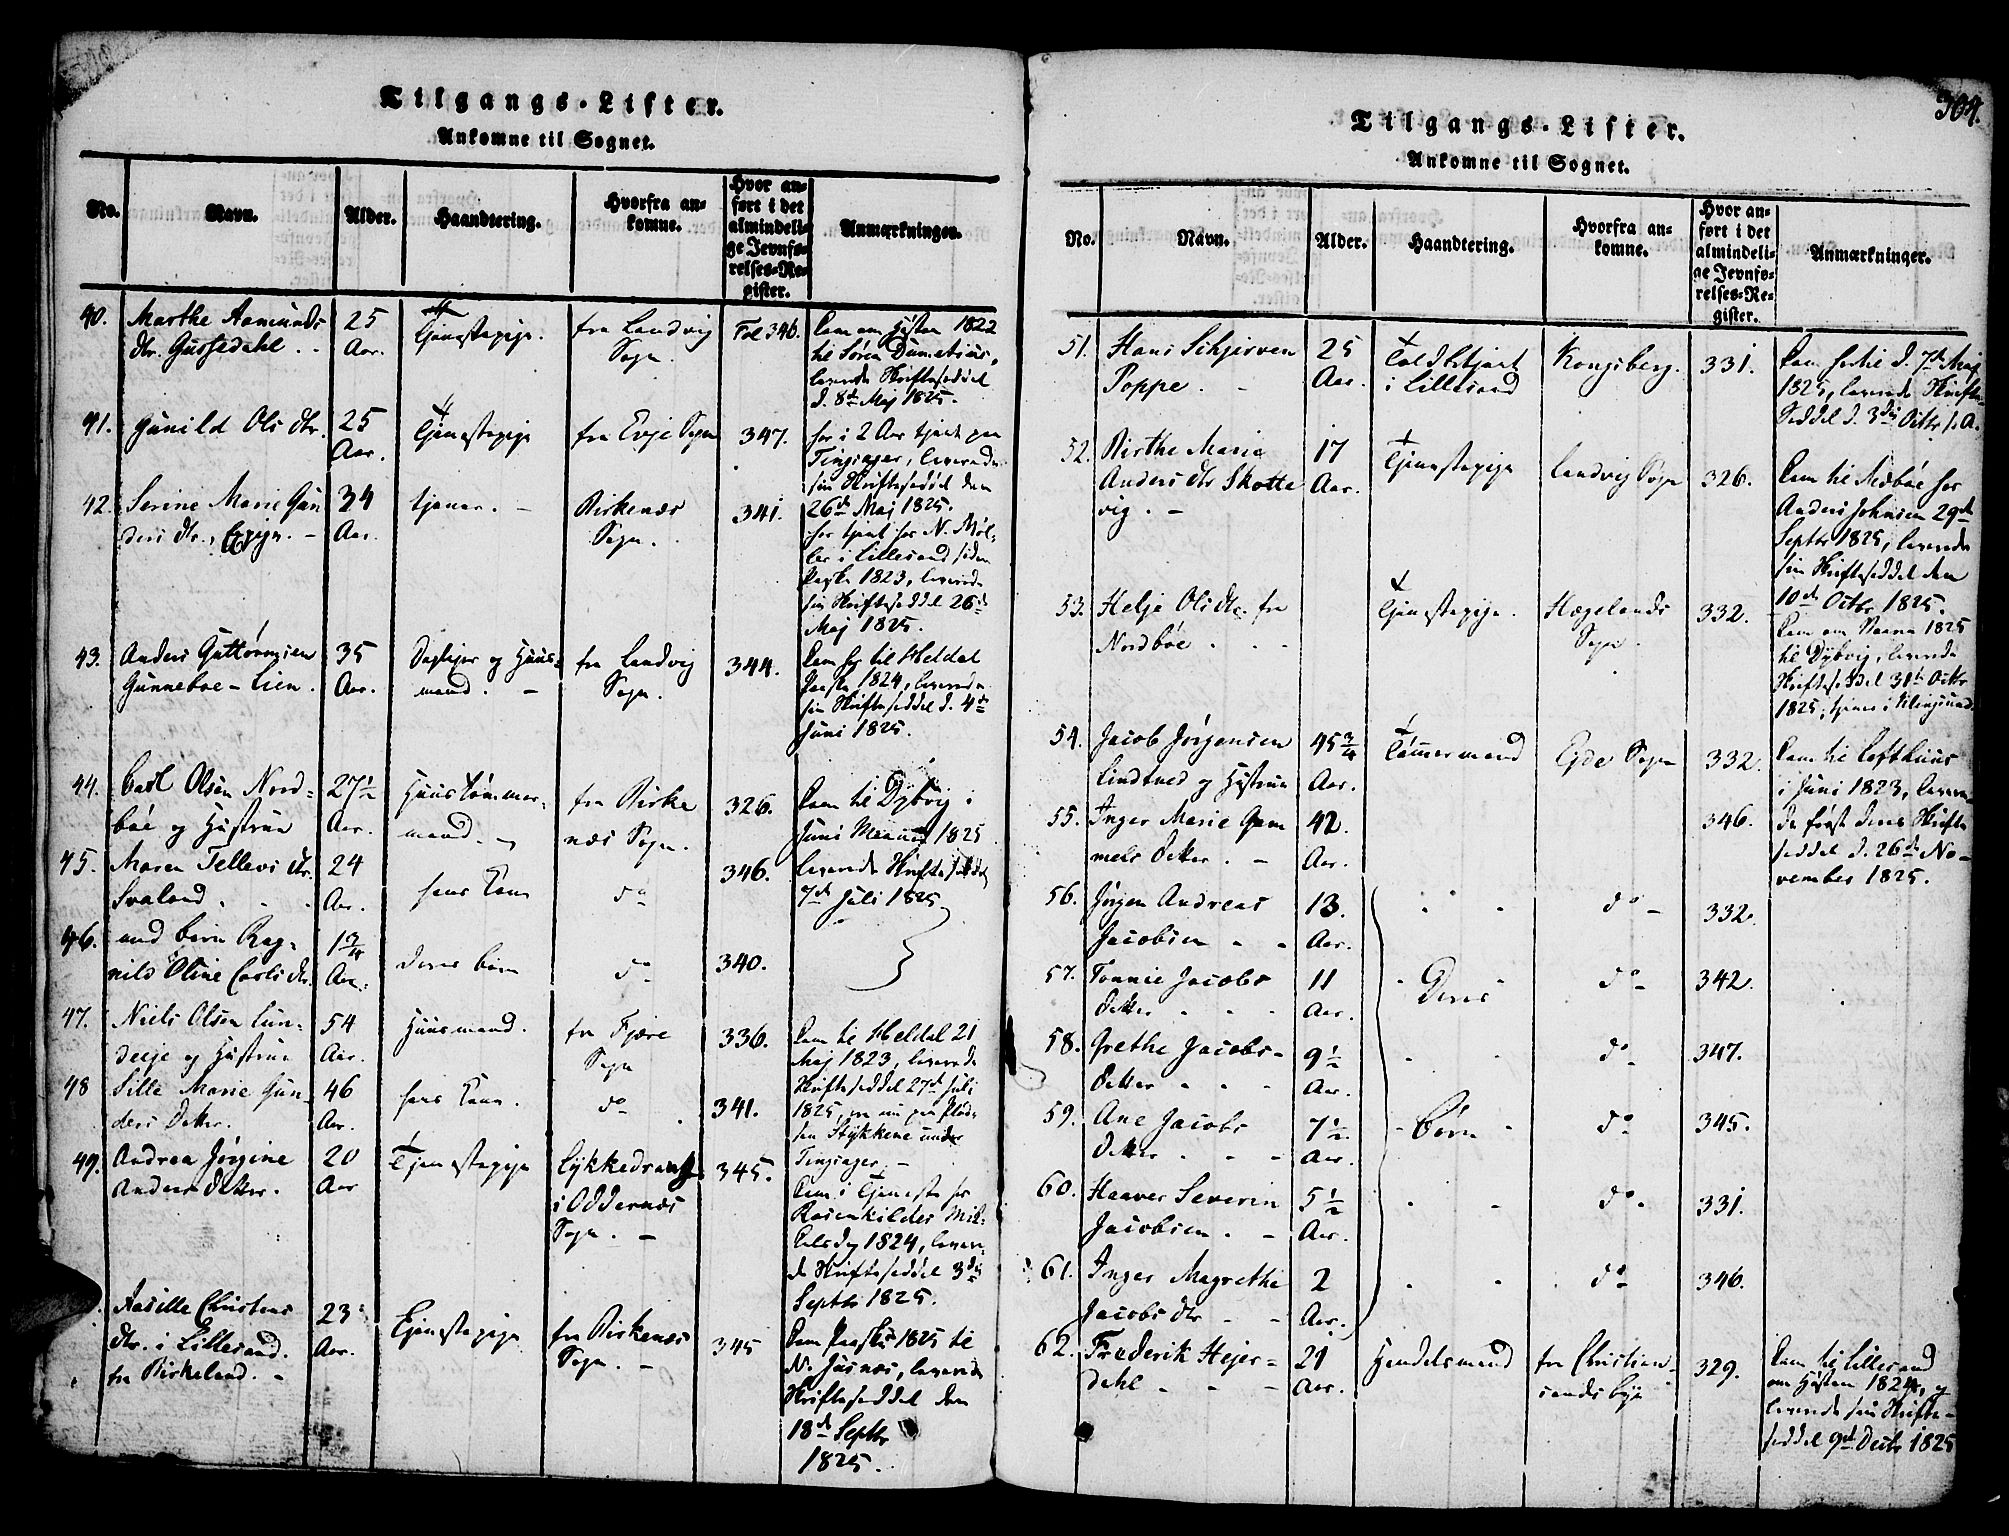 Tilgangs-Lister.
Ankomne til Sognet.
No.
Navn.
Alder.
Haandtering.
Hvorfra an-
komne.
Hvor an-
ført i det
almindeli-
ge Jevnfø-
relses-Re-
gister.
Anmærkninger.
40.
Marthe Aamunds
dtr. Gussedahl . .
25
Aar.
Tjenestepige.
fra Landvig
Sogn.
Fol 346.
kom om Høsten 1822
til Søren
leverede Skrifteseddel
d. 8de Maj 1825.
41.
Gunild Ols dtr.
25
Aar.
Tjenestepige
fra Evje Sogn
347.
har i 2 Aar tjent paa
Tingsager, leverede
sin Skrifteseddel den
26de Maj 1825.
42.
Serine Marie Gun
ders dtr.,
34
Aar.
tjener. -
Birkenæs
Sogn.
341.
har tjent hos N. Møl-
ler i Lillesand siden
Paaske 1823, leverede
sin Skrifteseddel 26de
Maj 1825.
43.
Anders Guttormsen
Gunneboe - Lien.
35
Aar.
Dagleier og Huus-
mand. -
fra Landvig
Sogn.
344.
kom her til Heldal
Paaske 1824, leverede
sin Skrifteseddel d. 4de
Juni 1825.
44.
Carl Olsen Nord-
bøe og Hustrue
27½
Aar.
Huustømmer-
mand. -
fra Birke
næs Sogn.
326.
kom til Dybvig i
Juni Maaned 1825
leverede Skrifteseddel
7de Juli 1825
45.
Maren Tellevs dtr.
Svaland . .
24
Aar.
hans Kone
do
346.
46.
med barn Rag-
nild Oline Carls dtr.
1¾
Aar.
deres barn
do
340.
47.
Niels Olsen Lun-
deeje og Hustrue
54
Aar.
Huusmand.
fra Fjære
Sogn
336.
kom til Heldal 21
Maj 1823, leverede
Skrifteseddel 27de Juli
1825, er nu paa Plad-
sen Stykkene under
Tingsager. -
48
Sille Marie Gun-
ders Datter.
46
Aar.
hans Kone.
do
341.
49.
Andrea Jørgine
Anders Datter.
20
Aar
Tjenestepige
Lykkedrang
i Oddernæs
Sogn. -
345.
kom i Tjeneste hos
Rosenkildes Mik-
kelsdag 1824, levere-
de Skrifteseddel 3die
Septbr 1825.
Aasille Christens
dtr. i Lillesand.
fra Birkeland. -
23
Aar.
Tjenestepige
fra Birkenæs
Sogn. -
345
kom Paaske 1825 til
N. Jusnæs, leverede
Skrifteseddel den
18de Septbr
1825.
304.
Tilgangs-Lister.
Ankomne til Sognet.
No.
Navn.
Alder.
Haandtering.
Hvorfra an-
komne.
Hvor an-
ført i det
almindeli-
ge Jevnfø-
relses-Re-
gister.
Anmærkninger.
51.
Hans Schjerven
Poppe. -
25
Aar.
Toldbetjent
i Lillesand
Kongsberg.
331.
kom hertil d. 7de Maj
1825, leverede Skrifte-
Seddel d. 3die Octbr s. A.
52.
Birthe Marie
Anders dtr Skotte
vig. -
17
Aar.
Tjenestepige
Landvig Sogn
326.
kom til Mæbøe hos
Anders Johnsen 29de
Septbr 1825, leverede
sin Skrifteseddel den
10de Octbr 1825.
53.
Helje Ols dtr fra
Nordbøe . . .
Tjenestepige.
Hægelands
Sogn.
332.
kom om Vaaren 1825
til Dybvig, leverede
Skrifteseddel 31te Octbr
1825, tjener i
54.
Jacob Jørgensen
Lindtved og Hustrue
45¾
Aar.
Tømmermand
Eyde Sogn
332.
kom til Lofthuus
i Juni 1823, levere-
de først deres Skrifte
seddel d. 26de No-
vember 1825.
55.
Inger Marie Gam
mels Datter. -
42.
Aar.
346.
56.
Jørgen Andreas
Jacobsen - -
13.
Aar.
do -
332.
57.
Tonnie Jacobs
Datter - - -
11
Aar.
- Deres -
do -
342.
58.
Grethe Jacobs-
Datter - - -
9½
Aar.
do -
347.
59.
Ane Jacobs
Datter - - -
7½
Aar.
- børn -
do -
345.
60.
Haaver Severin
Jacobsen. - -
5½
Aar.
do -
331.
61.
Inger Magrethe
Jacobs dtr - -
2
Aar.
do -
346.
62.
Frederik Hejer-
dahl - - -
21
Aar.
Handelsmand
fra Christian-
sands bye
329.
kom til Lillesand
om Høsten 1824, og
leverede sin Skrifte-
seddel 9de Decbr 1825